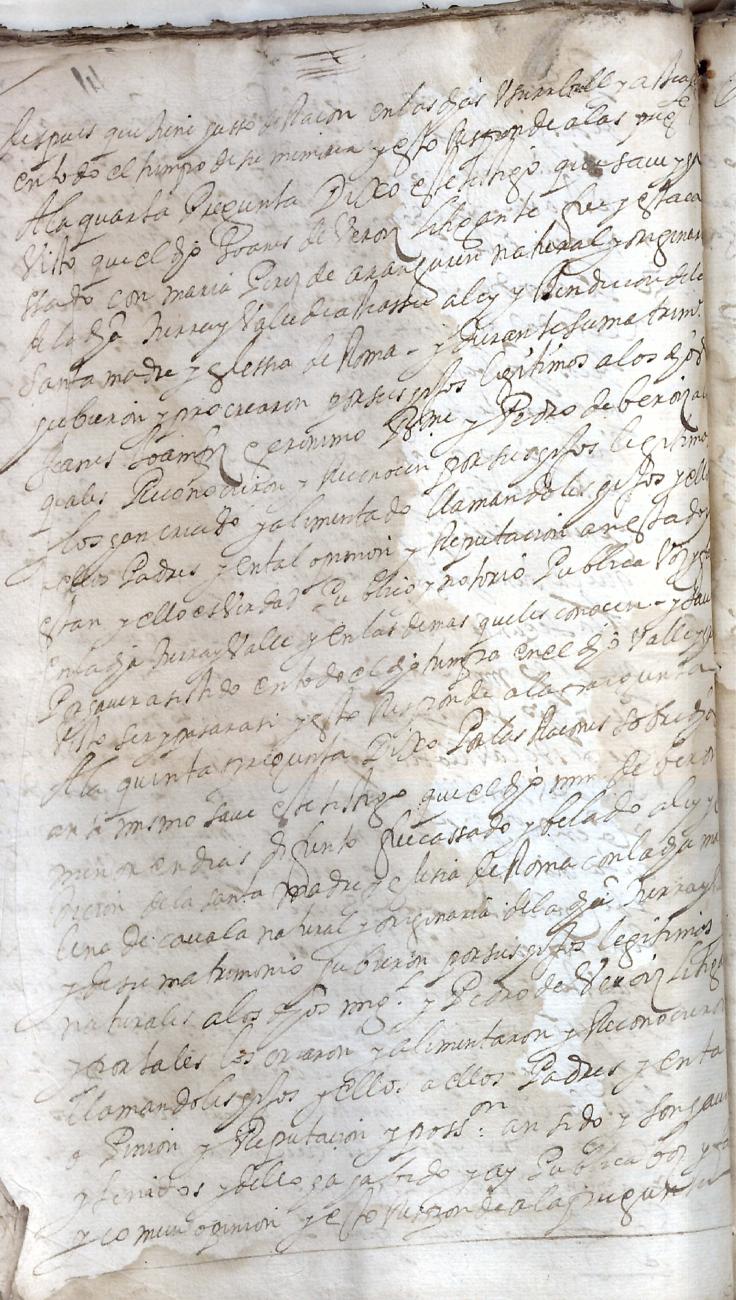 despues que tiene usso de Raçon en las dhas
en todo el tiempo de su memoria y esto Responde a las preg
A la quarta Pregunta Dixo este testigo que saue y a
Visto que el dho Joanes de Veroiz litigante fue y esta ca
ssado con maria Perez de aranguren natural y originar
de la dha tierra y Valle de a ley y Bendicion de la
santa madre yglessia de Roma - y durante su matrimo
hubieron y procrearon por sus hijos legitimos a los dhos
Joanes Ramon Geronimo y Pedro de beroiz a los
quales Reconocieron y Reconocen por sus hijos legitimos
y los han criado y alimentado llamandoles hijos y ellos
a ellos Padres y en tal opinion y Reputacion an estado y
estan y ello es Verdad Publico y notorio Publica Voz y
en la dha tierra y Valle y en las demas que les conocen - y saue
Porque a asistido en todo el dho tiempo en el dho Valle y
Visto ser y pasar asi y esto Responde a la pregunta
A la quinta Pregunta Dixo Por las Raçones sobredhas
ansi mismo saue este testigo que el dho de beroiz
menor en dias difunto fue cassado y belado a ley y
dicion de la santa madre yglesia de Roma con la dha ma
lena de cauala natural y originaria de la dha tierra y
y de su matrimonio hubieron por sus hijos legitimos
naturales a los dhos mig.l y Pedro de Veroiz litiga
y por tales los criaron y alimentaron y Reconocieron
llamandoles hijos y ellos a ellos Padres y en ta
o Pinion y Reputacion y poss.on an sido y son
y tenidos y dello ha abido y ay Publica boz y fa
y comun opinion y esto responde a la pregunta